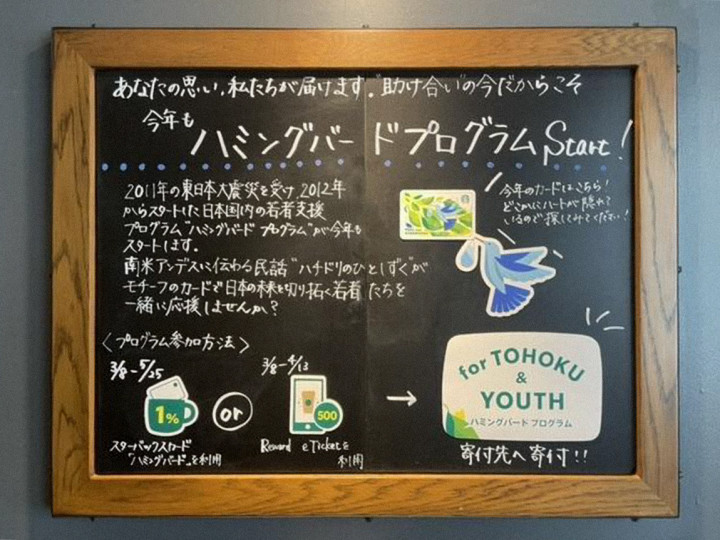 あなたの思い、私たちが届けます。"助け合い"の今だからこそ
今年も
ハミングバードプログラム Start!
2011年の東日本大震災を受け、2012年
からスタートした日本国内の若者支援
プログラム"ハミングバード プログラム"が今年も
スタートします。
南米アンデスに伝わる民話"ハチドリのひとしずく"が
モチーフのカードで日本の未来を切り拓く若者たちを
一緒に応援しませんか?
今年のカードはこちら!
どこかにハートが隠れて
いるので探してみてください!
〈プログラム参加方法〉
3/8-5/25
1%
スターバックスカード
"ハミングバード"を利用
or
3/8-4/13
500
Reward eTicketを
利用
→
for TOHOKU
&
YOUTH
ハミングバード プログラム
寄付先へ寄付!!